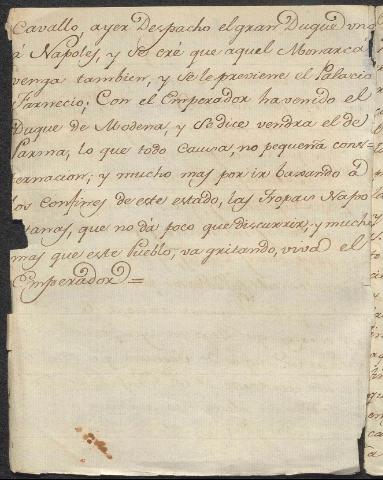 Cavallo, ayer Despacho el gran Duque uno
á Napoles, y se cré que aquel Monarca
venga tambien, y se le previene el Palacio
Farnecio; Con el Emperador ha venido el
Duque de Modena, y se dice vendra el de
Parma; lo que todo causa, no pequeña cons-
ternacion; y mucho mas por ir baxando á
los Confines de este estado, las Tropas Napo
litanas, que no dá poco que discurrir; y mucho
mas que este Pueblo, va gritando, viva el
Emperador =